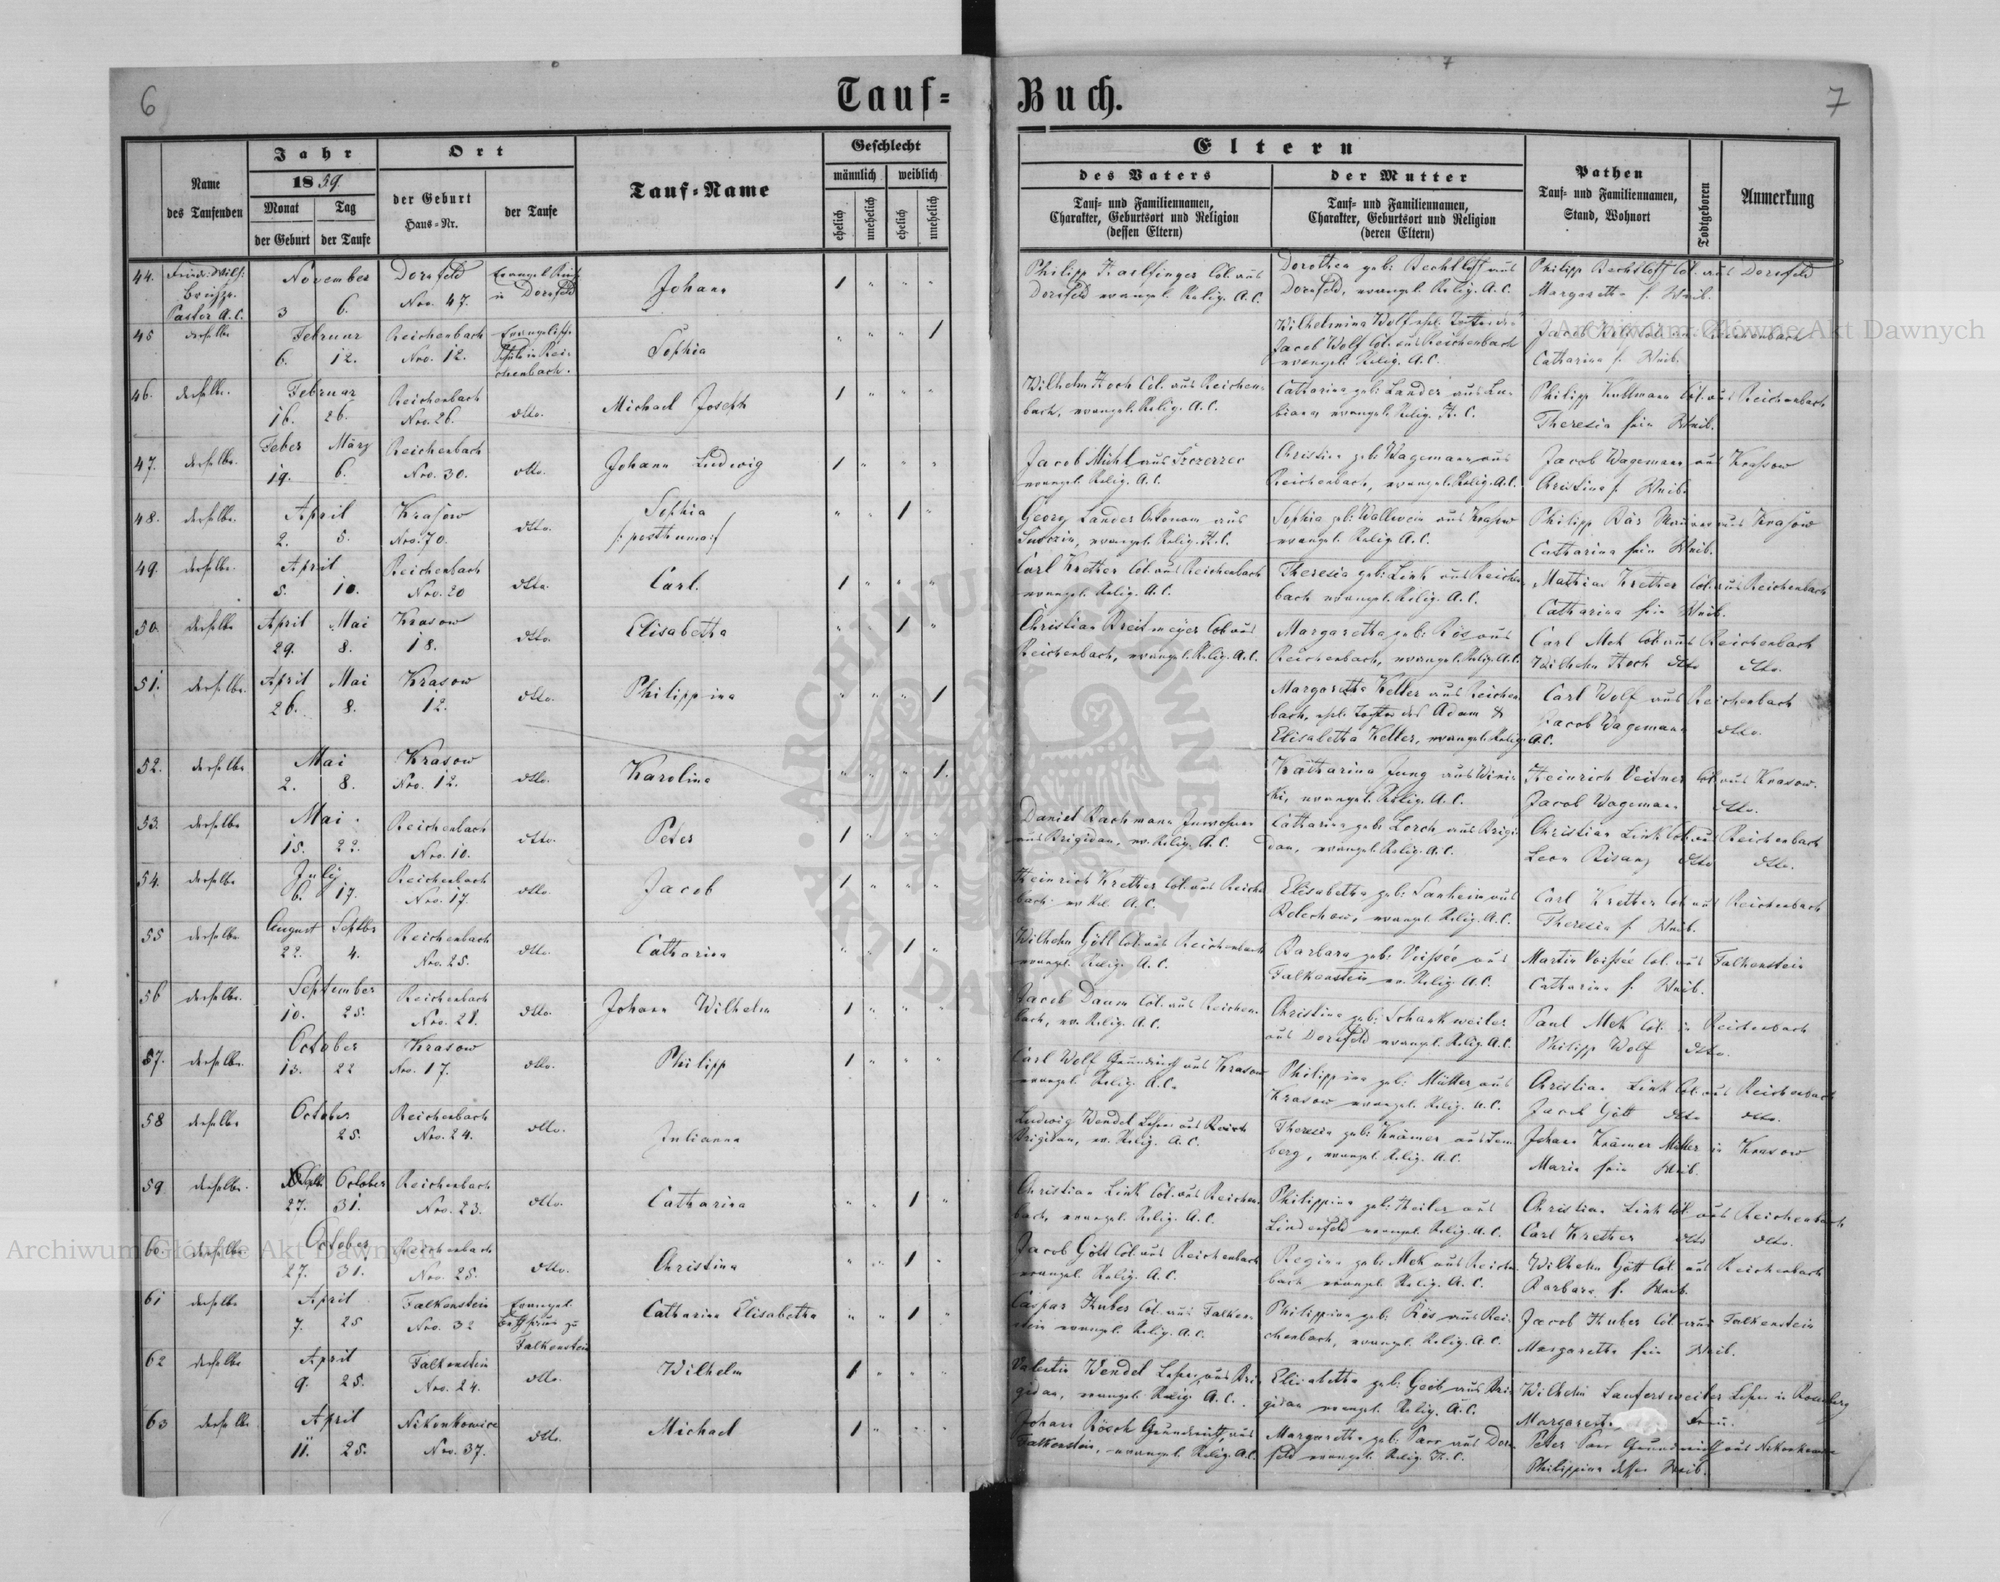 6
Tauf=
Buch.
7
Name
des Taufenden
Jahr
1859.
Monat
Tag
der Geburt
der Taufe
Ort
der Geburt
Haus=Nr.
der Taufe
Tauf=Name
Geschlecht
männlich
weiblich
ehelich
unehelich
ehelich
unehelich
Eltern
des Vaters
Tauf= und Familiennamen,
Charakter, Geburtsort und Religion
(dessen Eltern)
der Mutter
Tauf= und Familiennamen,
Charakter, Geburtsort und Religion
(deren Eltern)
Pathen
Tauf= und Familiennamen,
Stand, Wohnort
Todtgeboren
Anmerkung
44.
Pastor A.C.
November
3 6.
Dornfeld
Nro. 47.
in Dornfeld
Johann
1
Philipp
Col. aus
Dornfeld evangel. Relig. A.C.
Dorothea geb. Bechtloff aus
Dornfeld, evangel. Relig. A.C.
Philipp Bechtloff Col. aus Dornfeld
Margaretha s. Weib.
45 derselbe
Februar
6. 12.
Reichenbach
Nro. 12.
Evangelische
Schule in Rei-
chenbach.
Sophia
1
Wilhelmina Wolf
Jacob Wolf Col. aus Reichenbach
evangel. Relig. A.C.
Catharina s. Weib.
46. derselbe.
Februar
16. 26.
Reichenbach
Nro. 26.
dtto.
Michael Joseph
1
Wilhelm Hoch Col. aus Reichen-
bach, evangel. Relig. A.C.
Catharina geb. Lander aus
evangel. Relig. H.C.
Philipp Kuttmann Col. aus Reichenbach
Theresia sein Weib.
47. derselbe.
Feber März
19. 6.
Reichenbach
Nro. 30.
dtto.
Johann Ludwig
1
Jacob Mühl aus Szczerzec
evangel. Relig. A.C.
Christina geb. Wagemann aus
Reichenbach, evangel. Relig. A.C.
Jacob Wagemann aus Krasow
Christina s. Weib.
48. derselbe.
April
2. 5.
Krasow
Nro. 70.
dtto.
Sophia
/: posthuma :/
1
Georg Lander Oekonom aus
evangel. Relig. H.C.
Sophia geb. Wallwein aus Krasow
evangel. Relig. A.C.
Philipp Bär Maurer aus Krasow
Catharina sein Weib.
49. derselbe.
April
5. 10.
Reichenbach
Nro. 20
dtto.
Carl.
1
Carl Krether Col. aus Reichenbach
evangel. Relig. A.C.
Theresia geb. Link aus Reichen-
bach evangel. Relig. A.C.
Mathias Krether Col. aus Reichenbach
Catharina sein Weib.
50. derselbe
April Mai
29. 8.
Krasow
18.
dtto.
Elisabetha
1
Christian Breitmeyer Col. aus
Reichenbach, evangel. Relig. A.C.
Margaretha geb. Rös aus
Reichenbach, evangel. Relig. A.C.
Carl Mek Col. aus Reichenbach
Wilhelm Hoch dtto dtto.
51. derselbe.
April Mai
26. 8.
Krasow
12.
dtto.
Philippina
1
Margaretha Keller aus Reichen-
bach, ehel. Tochter des Adam &
Elisabetha Keller, evangel. Relig. A.C.
Carl Wolf aus Reichenbach
Jacob Wagemann dtto.
52. derselbe
Mai
2. 8.
Krasow
Nro. 12.
dtto.
Karolina
1.
Katharina Jung aus
evangel. Relig. A.C.
Heinrich Veitner Col. aus Krasow.
Jacob Wagemann dtto.
53. derselbe
Mai
15. 22.
Reichenbach
Nro. 10.
dtto.
Peter
1
Daniel Bachmann Inwohner
aus Brigidau, ev. Relig. A.C.
Catharina geb. Lorch aus Brigi-
dau, evangel. Relig. A.C.
Christian Link Col. aus Reichenbach
Leon dtto dtto.
54. derselbe
July
6. 17.
Reichenbach
Nro. 17
dtto.
Jacob
1
Heinrich Krether Col. aus Reichen-
bach ev. Rel. A.C.
Elisabetha geb. Sanheim aus
Bolechow, evangel. Relig. A.C.
Carl Krether Col. aus Reichenbach
Theresia s. Weib.
55 derselbe
August Septbr
22. 4.
Reichenbach
Nro. 25.
dtto.
Catharina
1
Wilhelm Gött Col. aus Reichenbach
evangel. Relig. A.C.
Barbara geb. Voissée aus
Falkenstein ev. Relig. A.C.
Martin Voissée Col. aus Falkenstein
Catharina s. Weib.
56 derselbe.
September
10. 25.
Reichenbach
Nro. 21.
dtto.
Johann Wilhelm
1
Jacob Daum Col. aus Reichen-
bach, ev. Relig. A.C.
Christina geb. Schankweiler
aus Dornfeld evangel. Relig. A.C.
Paul Mek Col. in Reichenbach
Philipp Wolf dtto.
57. derselbe.
October
13. 22
Krasow
Nro. 17.
dtto.
Philipp
1
Carl Wolf Grundwirth aus Krasow
evangel. Relig. A.C.
Philippina geb. Müller aus
Krasow evangel. Relig. A.C.
Christian Link Col. aus Reichenbach
Jacob Gött dtto dtto.
58 derselbe
October
25.
Reichenbach
Nro. 24.
dtto.
Julianna
Ludwig Wendel Lehrer aus
Brigidau, ev. Relig. A.C.
Theresia geb. Krämer aus Lem-
berg, evangel. Relig. A.C.
Johann Krämer Müller in Krasow
Maria sein Weib.
59 derselbe.
October
27. 31.
Reichenbach
Nro. 23.
dtto.
Catharina
1
Christian Link Col. aus Reichen-
bach, evangel. Relig. A.C.
Philippina geb. Heiler aus
Lindenfeld evangel. Relig. A.C.
Christian Link Col. aus Reichenbach
Carl Krether dtto dtto.
60 derselbe
October
27. 31.
Reichenbach
Nro. 25.
dtto.
Christina
1
Jacob Gött Col. aus Reichenbach
evangel. Relig. A.C.
Regina geb. Mek aus Reichen-
bach evangel. Relig. A.C.
Wilhelm Gött Col. aus Reichenbach
Barbara s. Weib.
61 derselbe
April
7. 25
Falkenstein
Nro. 32
Evangel.
Bethhaus zu
Falkenstein
Catharina Elisabetha
1
Caspar Huber Col. aus Falken-
stein evangel. Relig. A.C.
Philippina geb. Rös aus Rei-
chenbach, evangel. Relig. A.C.
Jacob Huber Col. aus Falkenstein
Margaretha sein Weib.
62 derselbe
April
9. 25.
Falkenstein
Nro. 24.
dtto.
Wilhelm
1
Valentin Wendel Lehrer aus Bri-
gidau, evangel. Relig. A.C.
Elisabetha geb. Geib aus Bri-
gidau evangel. Relig. A.C.
Wilhelm Lehrer in Rosenberg
63 derselbe.
April
11. 25.
Nikonkowice
Nro. 37.
dtto.
Michael
1
Johann Rösch Grundwirth aus
Falkenstein, evangel. Relig. A.C.
Margaretha geb. Parr aus Dorn-
feld evangel. Relig. H.C.
Peter Parr Grundwirth aus
Philippina dessen Weib.
Archiwum Główne Akt Dawnych
Archiwum Główne Akt Dawnych
ARCHIWUM GŁÓWNE AKT DAWNYCH